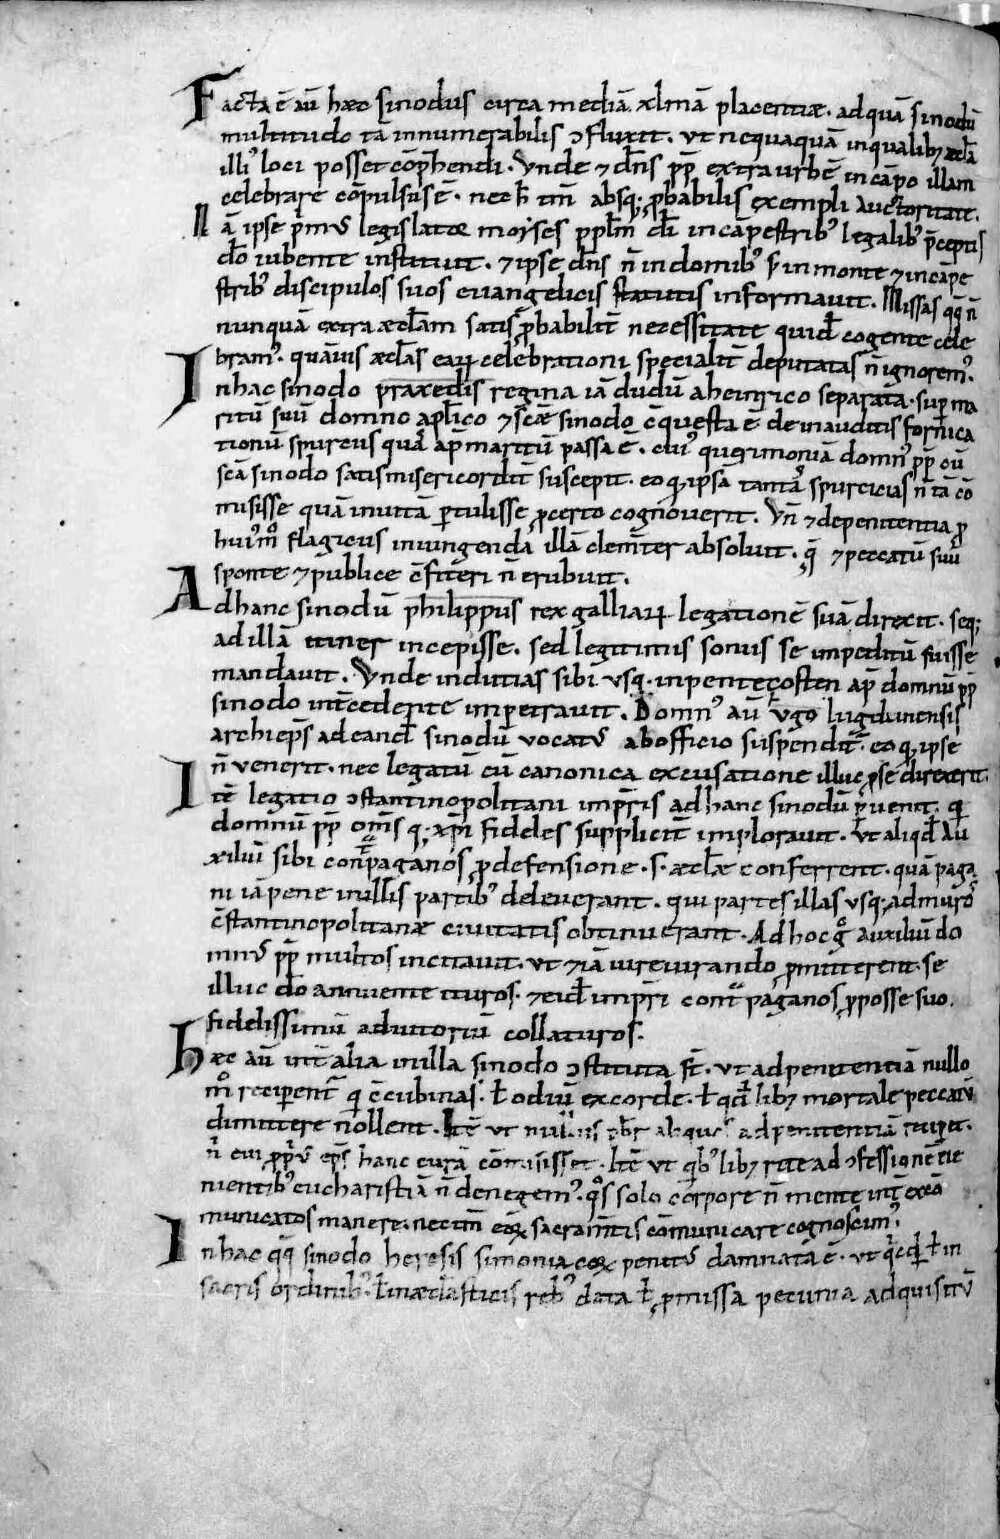 Facta ē aū hæc sinodus circa mediā xlmā placentiæ. ad quā sinodū
multitudo tā innumerabilis ↄfluxit. ut nequaquā in qualibȝ æccła
illi' loci posset cōp̄hendi. Unde ⁊ dn̄s pp̄ extra urbē in cāpo illam
celebrare cōpulsus ē. nec h̄ tm̄ absq; ꝓbabilis exempli auctoritate.
Nā ipse p̄mus legislator moises pp̄lm dī in cāpestrib' legalib' p̄ceptis
dō iubente instituit. ⁊ ipse dn̄s n̄ in domib' s; in monte ⁊ in cāpe
strib' discipulos suos euangelicis statutis informauit. Missas qq̄ n̄
nunquā extra æccłam satis ꝓbabilit̄ necessitate quidē cogente cele
bram'. quāuis æccłas eaꝝ celebrationi specialit̄ deputatas n̄ ignorem'.
In hac sinodo praxedis regina iā dudū a heinrico separata. sup̄ ma
ritū suū domno apłico ⁊ scæ sinodo c̄questa ē de inauditis fornica
tionū spurcitiis quas ap̄ maritū passa ē. cui' querimoniā domn' pp̄ cū
sca sinodo satis misericordit̄ suscepit. eo qđ ipsā tantas spurcicias n̄ tā cō
misisse quā inuitā ꝑtulisse ꝓ certo cognouerit. Un̄ ⁊ de penitentia ꝓ
hui'mͦ flagiciis iniungenda illā clemēter absoluit. q̄ ⁊ peccatū suū
sponte ⁊ publice c̄fiteri n̄ erubuit.
Ad hanc sinodū philippus rex galliaꝝ legationē suā direxit. seq;
ad illā itiner incepisse. sed legitimis soniis se impeditū fuisse
mandauit. Unde indutias sibi usq; in pentecosten ap̄ domnū pp̄
sinodo int̄cedente impetrauit. Domn' aū ugo lugdunensis
archiep̄s ad eandē sinodū uocatus ab officio suspendit̄. eo qđ ipse
n̄ uenerit. nec legatū cū canonica excusatione illuc ꝓ se direxerit.
Itē legatio ↄstantinopolitani imp̄ris ad hanc sinodū ꝑuenit. qui
domnū pp̄ om̄s q; xp̄i fideles supplicit̄ implorauit. ut aliqđ au
xiliū sibi cont̄ paganos ꝓ defensione. s. æccłæ conferrent. quā paga
ni iā pene in illis partib' deleuerant. qui partes illas usq; ad muros
c̄stantinopolitanæ ciuitatis obtinuerant. Ad hoc gͦ auxiliū do
mnus pp̄ multos incitauit. ut ⁊iā iureiurando ꝓmitterent. se
illuc dō annuente ituros. ⁊ eidē imp̄ri cont̄ paganos ꝓ posse suo
fidelissimū adiutoriū collaturos.
Hæc aū int̄ alia in illa sinodo ↄstituta st̄. ut ad penitentiā nullo
mͦ reciperent̄ qui c̄cubinas. ł odiū ex corde. ł qđ libȝ mortale peccatū
dimittere nollent. Itē ut nullus p̄br aliquē ad penitentiā recipet.
n̄ cui ꝓprius ep̄s hanc curā cōmisisset. Itē ut qib' libȝ rite ad ↄfessionē ue
nientib' eucharistiā n̄ denegem'. qͦs solo corpore n̄ mente int̄ exco
municatos manere. nec tm̄ eoꝝ sacram̄tis cōmunicare cognoscim'.
In hac qq̄ sinodo heresis simoniacoꝝ penitus damnata ē. ut qͥcqđ ł in
sacris ordinib'. ł in æccłasticis reb' data ł ꝓmissa pecunia adquisitū